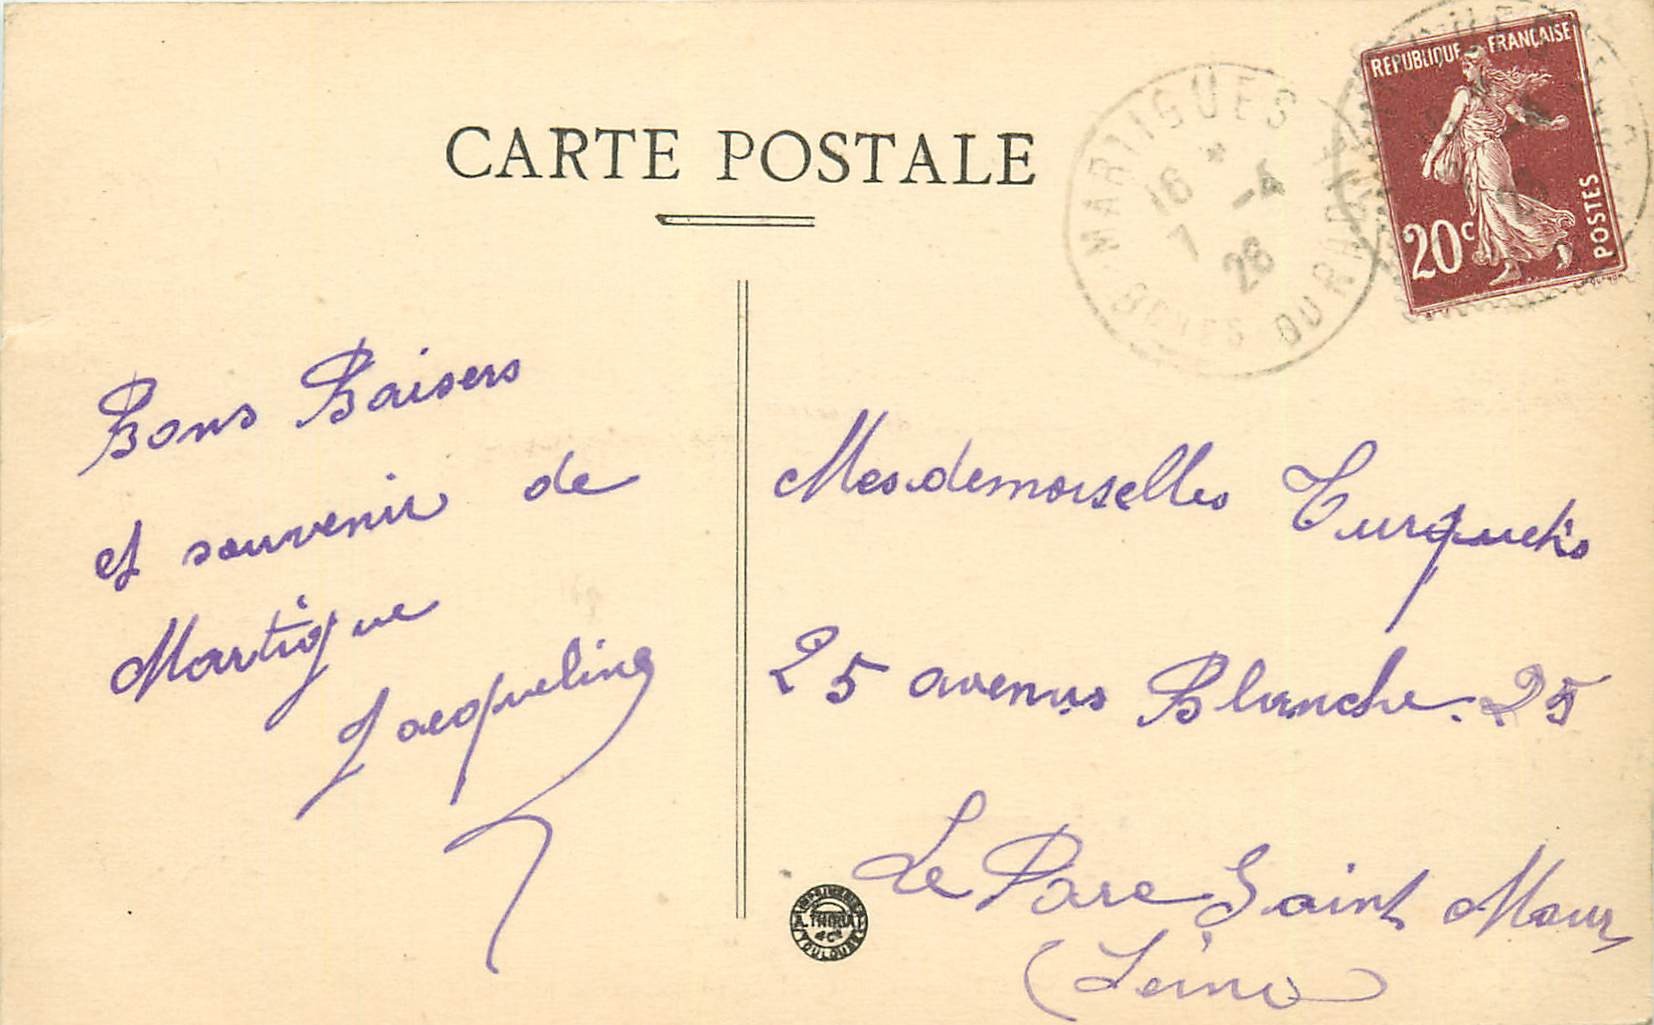 CARTE POSTALE
MARTIGUES
16 * -4
7 26
BCHES DU R
REPUBLIQUE FRANÇAISE
20c
POSTES
Bons Baisers
et souvenir de
Martigue
Jacqueline
Mesdemoiselles Turquetis
25 avenue Blanche. 25
Le Parc Saint Maur
(Seine)
TOULOUSE